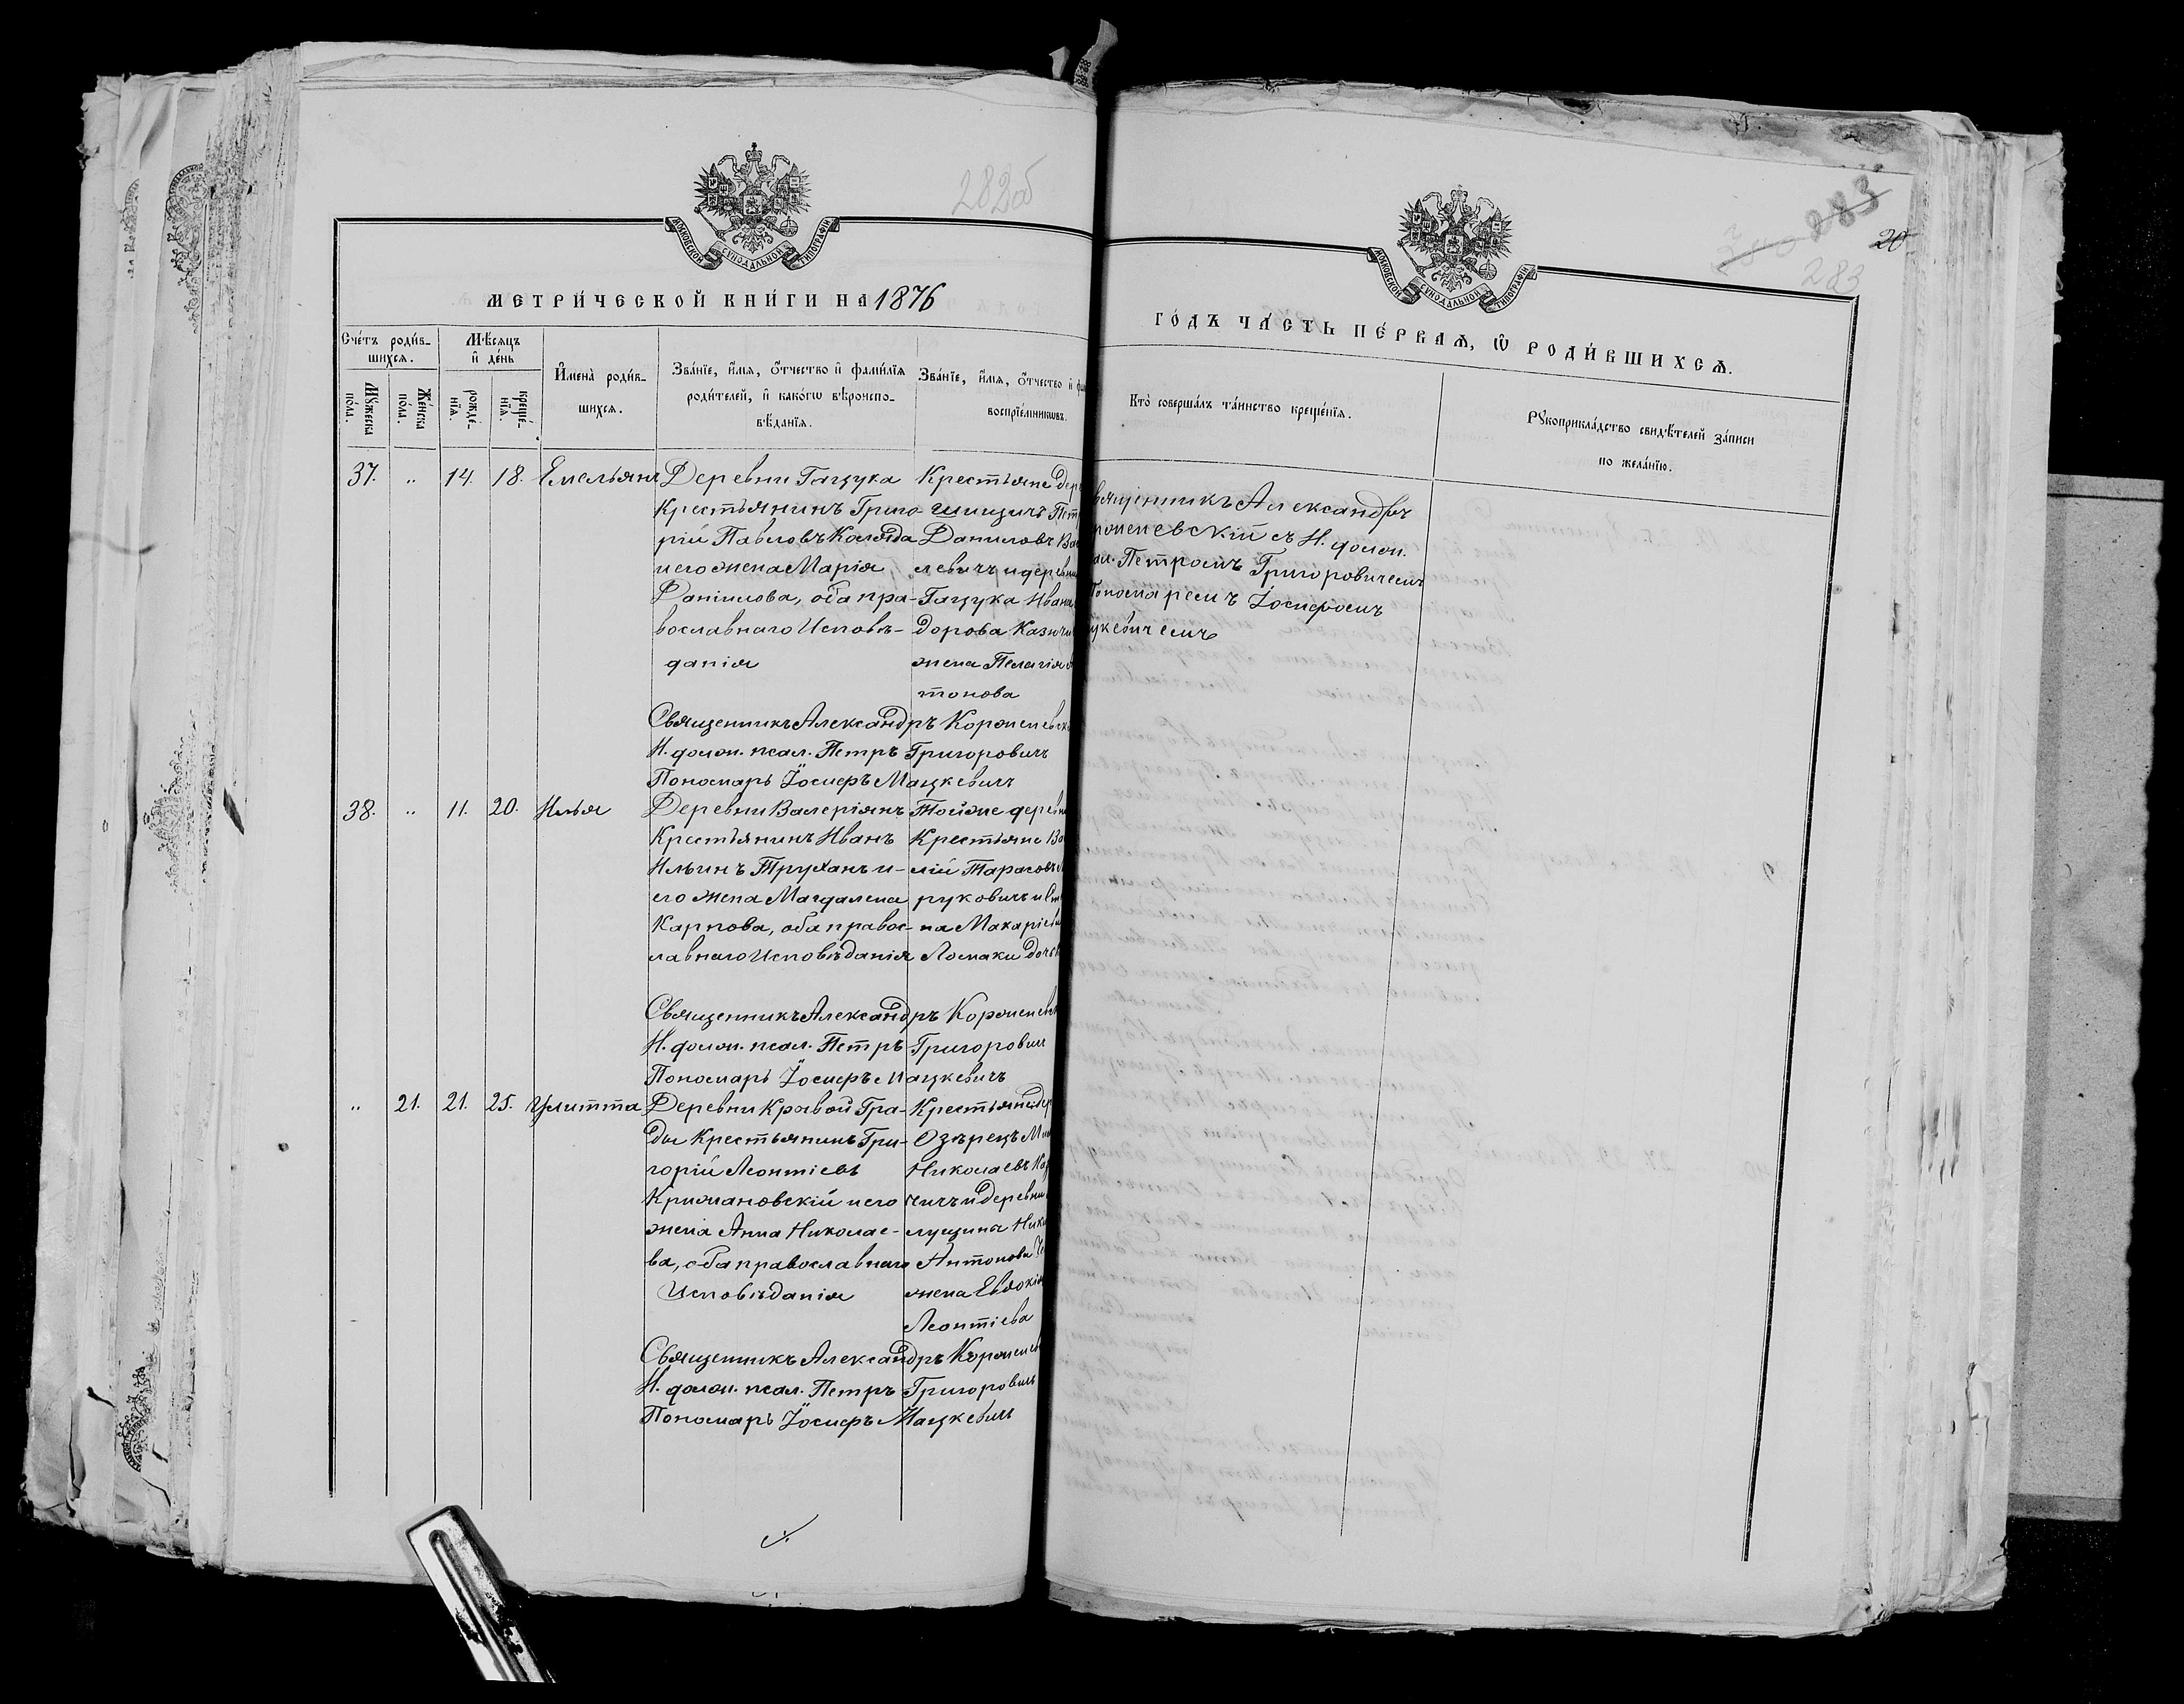 282об
283
20
283
МОСКОВСКОЙ СѴНОДАЛЬНОЙ ТИПОГРАФІИ
МОСКОВСКОЙ СѴНОДАЛЬНОЙ ТИПОГРАФІИ
МЕТРИ́ЧЕСКОЙ КНИ́ГИ НА 1876
ГО́ДЪ ЧА́СТЬ ПЕ́РВАЯ, Ѡ РОДИ́ВШИХСЯ.
Сче́тъ роди́в-
шихся.
Мѣ́сяцъ
и де́нь
Мꙋжеска
по́ла.
Же́нска
по́ла.
рожде́-
нїѧ.
креще́-
нїѧ.
Имена̀ роди́в-
шихсѧ.
Зва́нїе, и́мѧ, о́тчество и фами́лїѧ
роди́телей, и како́гѡ вѣроиспо-
вѣ́данїѧ.
Зва́нїе, и́мѧ, о́тчество и
воспрїе́мникѡвъ.
Кто̀ соверша́лъ та́инство креще́нїѧ.
Рꙋкоприкла́дство свидѣ́телей за́писи
по жела́нїю.
37. „ 14. 18. Емельянъ
Деревни Гацука
Крестьянинъ Григо-
рій Павловъ Коляда
и его жена Марія
Даніилова, оба пра-
вославнаго Исповѣ-
данія
Крестьяне дер
Даниловъ Ва
левичъ и деревни
Гацука Иван
дорова Казючи
жена Пелагія
тонова
вященникъ Александръ
роженевскій съ И. долж.
сал. Петромъ Григоровичемъ
Пономаремъ Іосифомъ
цкевичемъ
Священникъ Александръ Корженевск
И. долж. псал. Петръ Григоровичъ
Пономарь Іосифъ Мацкевичъ
38. „ 11. 20. Илья
Деревни Валеріянъ
Крестьянинъ Иванъ
Ильинъ Труханъ и
его жена Магдалена
Карпова, оба правос-
лавнаго Исповѣданія
Тойже деревни
Крестьяне Ва
лій Тарасовъ
руковичъ и
на Макаріев
Ломаки дочь
Священникъ Александръ Корженевс
И. долж. псал. Петръ Григоровичъ
Пономарь Іосифъ Мацкевичъ
„ 21. 21. 25. Улитта
Деревни Кривой Гря-
ды Крестьянинъ Гри-
горій Леонтіевъ
Крижановскій и его
жена Анна Николае-
ва, оба православнаго
Исповѣданія
Крестьяне дер
Озѣрецъ
Николаевъ
чичъ и деревни
лущина Ник
Антонова
жена Евдокія
Леонтіева
Священникъ Александръ Корженев
И. долж. псал. Петръ Григоровичъ
Пономарь Іосифъ Мацкевичъ